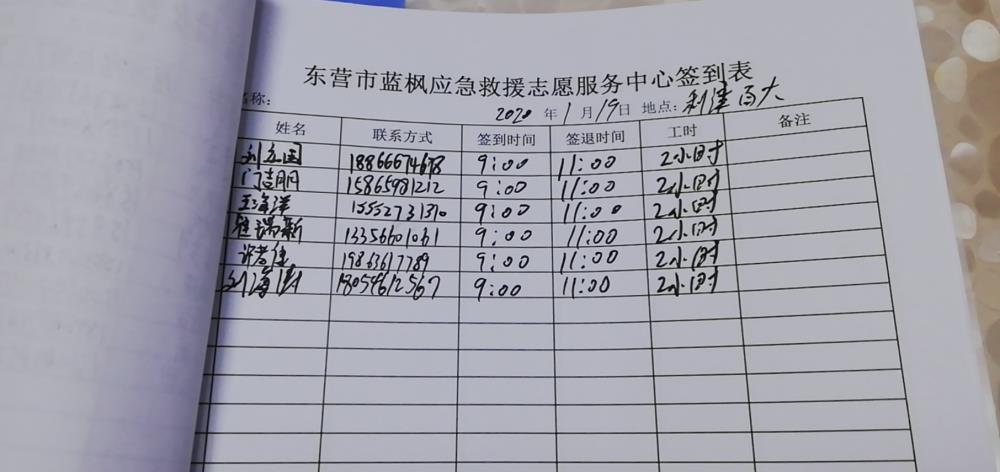 东营市蓝枫应急救援志愿服务中心签到表
名称: 2020 年 1 月 19 日 地点: 利津百大
姓名 联系方式 签到时间 签退时间 工时 备注
刘立国 18866674678 9:00 11:00 2小时
门志朋 15865981212 9:00 11:00 2小时
王海洋 15552731370 9:00 11:00 2小时
瑞新 13356601061 9:00 11:00 2小时
许孝佳 19833617789 9:00 11:00 2小时
刘海 18054612567 9:00 11:00 2小时